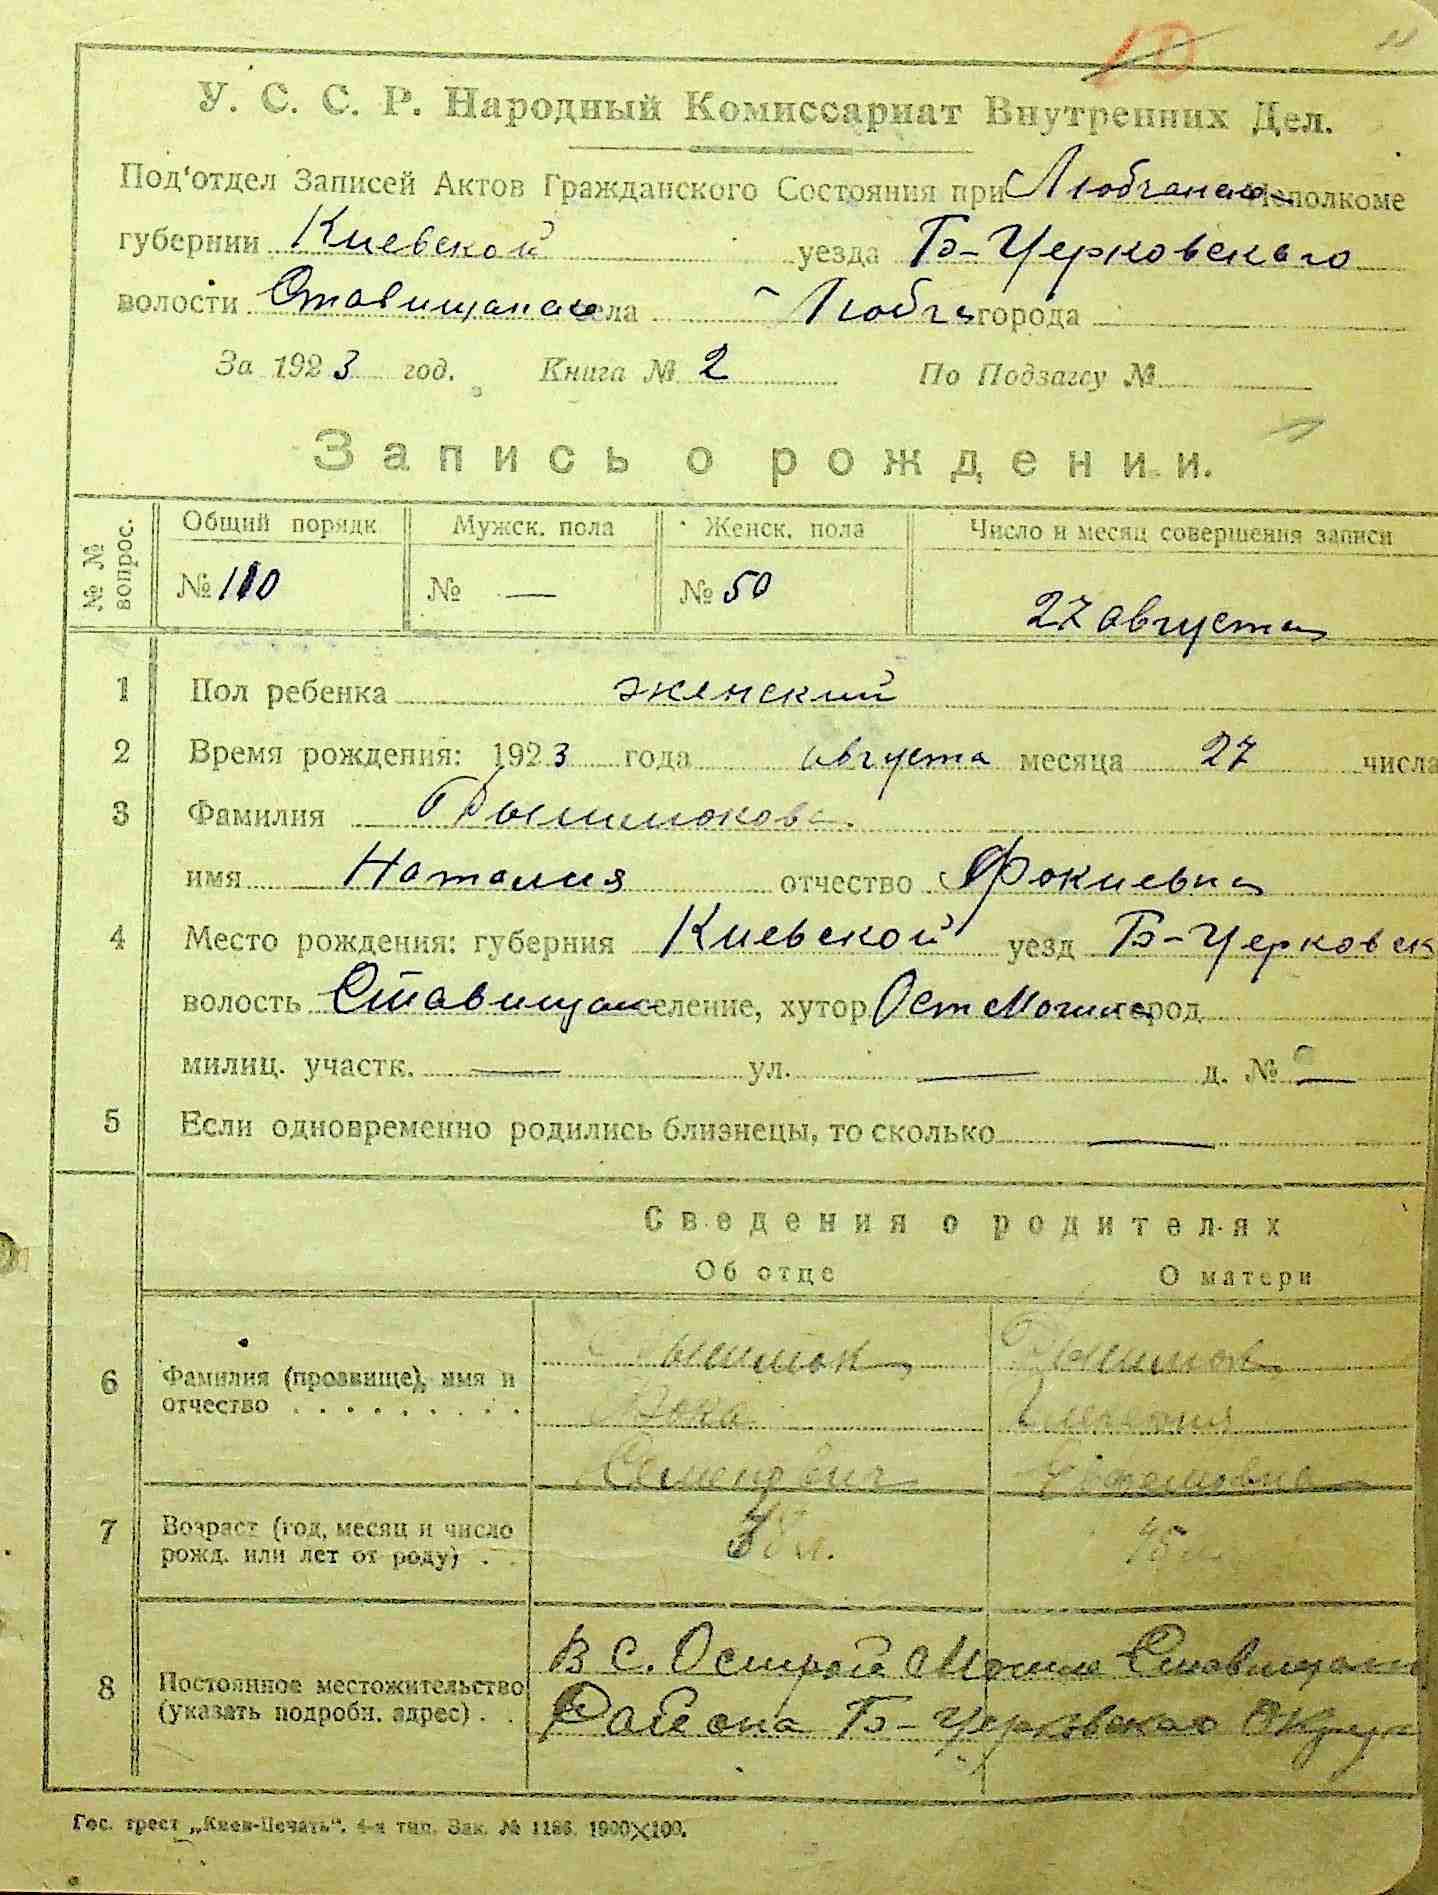 У. С. С. Р. Народный Комиссариат Внутренних Дел.
Под'отдел Записей Актов Гражданского Состояния при Исполкоме
губернии Киевской уезда Б-Церковского
волости села города
За 1923 год. Книга № 2 По Подзагсу №
Запись о рождении.
№ № вопрос. Общий порядк Мужск. пола Женск. пола Число и месяц совершения записи
№ 110 № — № 50 27 августа
1 Пол ребенка женский
2 Время рождения: 1923 года августа месяца 27 числа
3 Фамилия
имя Наталия отчество Фокиевна
4 Место рождения: губерния Киевской уезд Б-Церковск
волость Ставищан селение, хутор Ост Могила город
милиц. участк. — ул. — д. № —
5 Если одновременно родились близнецы, то сколько —
Сведения о родителях
Об отце О матери
6 Фамилия (прозвище), имя и
отчество . . . . . . . . .
Фока
Семенович
7 Возраст (год, месяц и число
рожд. или лет от роду) . .
8 Постоянное местожительство
(указать подробн. адрес) . .
В С. Острой Могиле Ставищан
Района Б-Церковского Округа
Гос. трест „Киев-Печать". 4-я тип. Зак. № 1186. 1900×100.